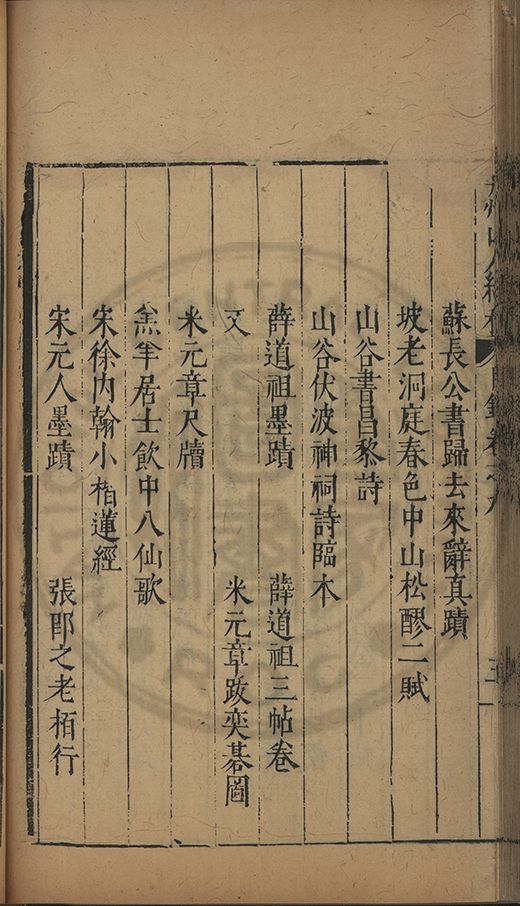 弇州山人續稿 目錄卷之九 三
蘇長公書歸去來辭真蹟
坡老洞庭春色中山松醪二賦
山谷書昌黎詩
山谷伏波神祠詩臨本
薛道祖墨蹟 薛道祖三帖卷
又 米元章跋奕碁圖
米元章尺牘
羔羊居士飲中八仙歌
宋徐內翰小楷蓮經
宋元人墨蹟 張郎之老栢行